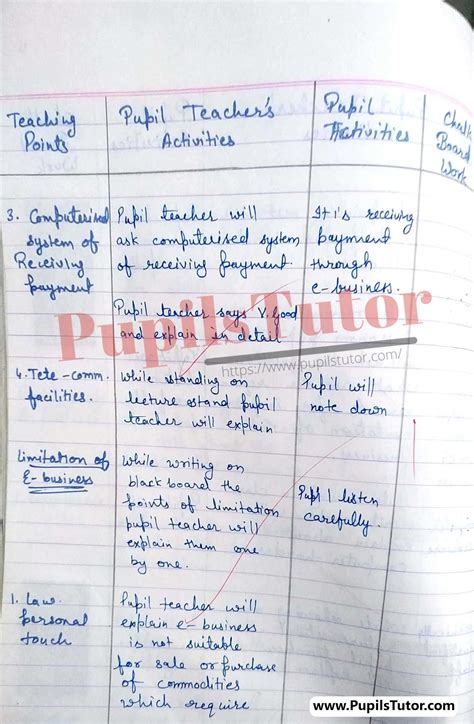 Teaching Points
Pupil Teacher's Activities
Pupil Activities
Chalk Board Work
3. Computerised
system of
Receiving
payment
Pupil teacher will
ask computerised system
of receiving payment
Pupil teacher says V. Good
and explain in detail
It is receiving
payment
through
e-business.
PupilsTutor
https://www.pupilstutor.com/
4. Tete-comm.
facilities.
While standing on
lecture stand pupil
teacher will explain
Pupil will
note down
Limitation of
E-business
While writing on
black board the
points of limitation
pupil teacher will
explain them one
by one.
Pupil listen
carefully.
1. Law
personal
touch
Pupil teacher will
explain e-business
is not suitable
for sale or purchase
of commodities
which require
www.PupilsTutor.com